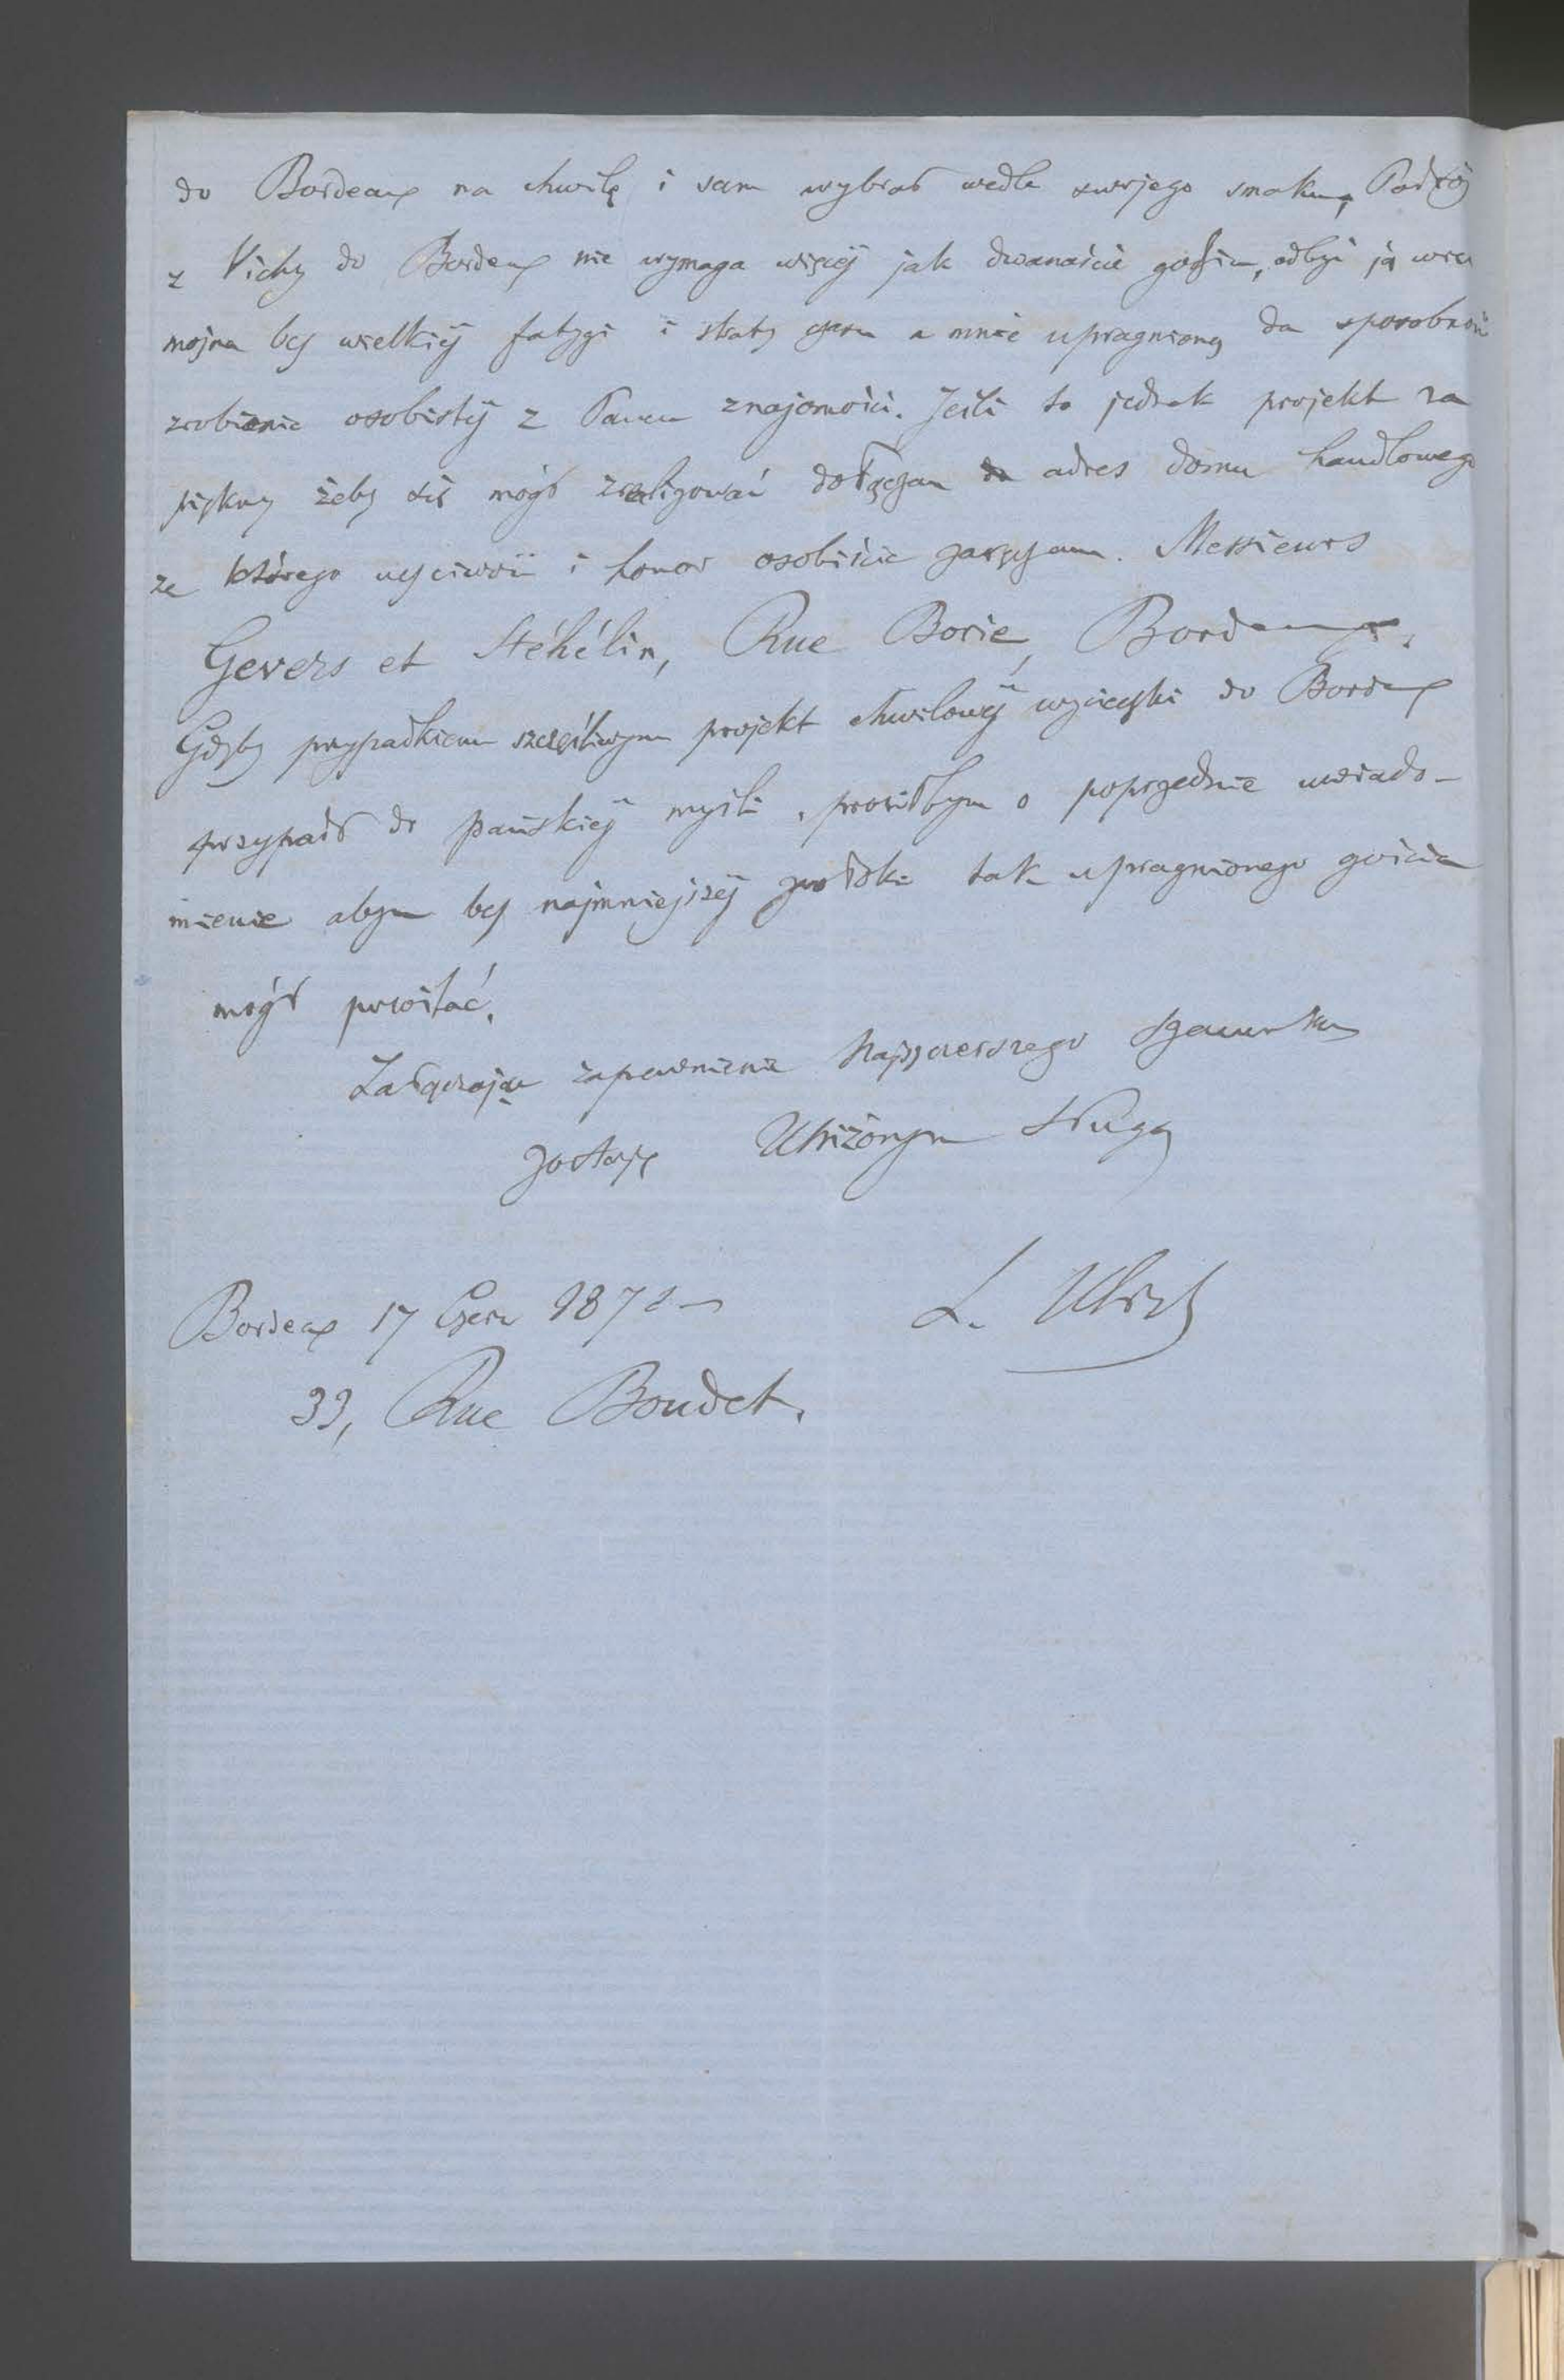 do Bordeaux na chwilę i sam wybrał wedle swojego smaku, Podróż
z Vichy do Bordeaux nie wymaga więcéj jak dwanaście godzin, odbyć ją więc
można bez wielkiéj fatygi i straty czasu a mnie upragnioną da sposobność
zrobienia osobistéj z Panem znajomości. Jeśli to jednak projekt za
piękny żeby się mógł zrealizować dołączam adres domu handlowego
za którego uczciwość i honor osobiście zaręczam. Messieurs
Gevers et Stéhélin, Rue Borie, Bordeaux.
Gdyby przypadkiem szczęśliwym projekt chwilowéj wycieczki do Bordeaux
przypadł do pańskiéj myśli, prosiłbym o poprzednie uwiado-
mienie abym bez najmniejszéj zwłoki tak upragnionego gościa
mógł powitać.
Załączając zapewnienie Najszczerszego szacunku
zostaję Uniżonym sługą
Bordeaux 17 Czerw 187
L.
33, Rue Boudet.